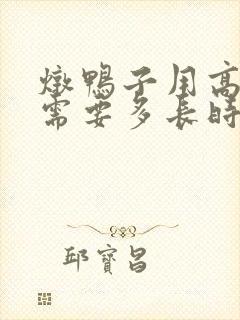 燉鴨子用高
需要多長時
邱寶昌